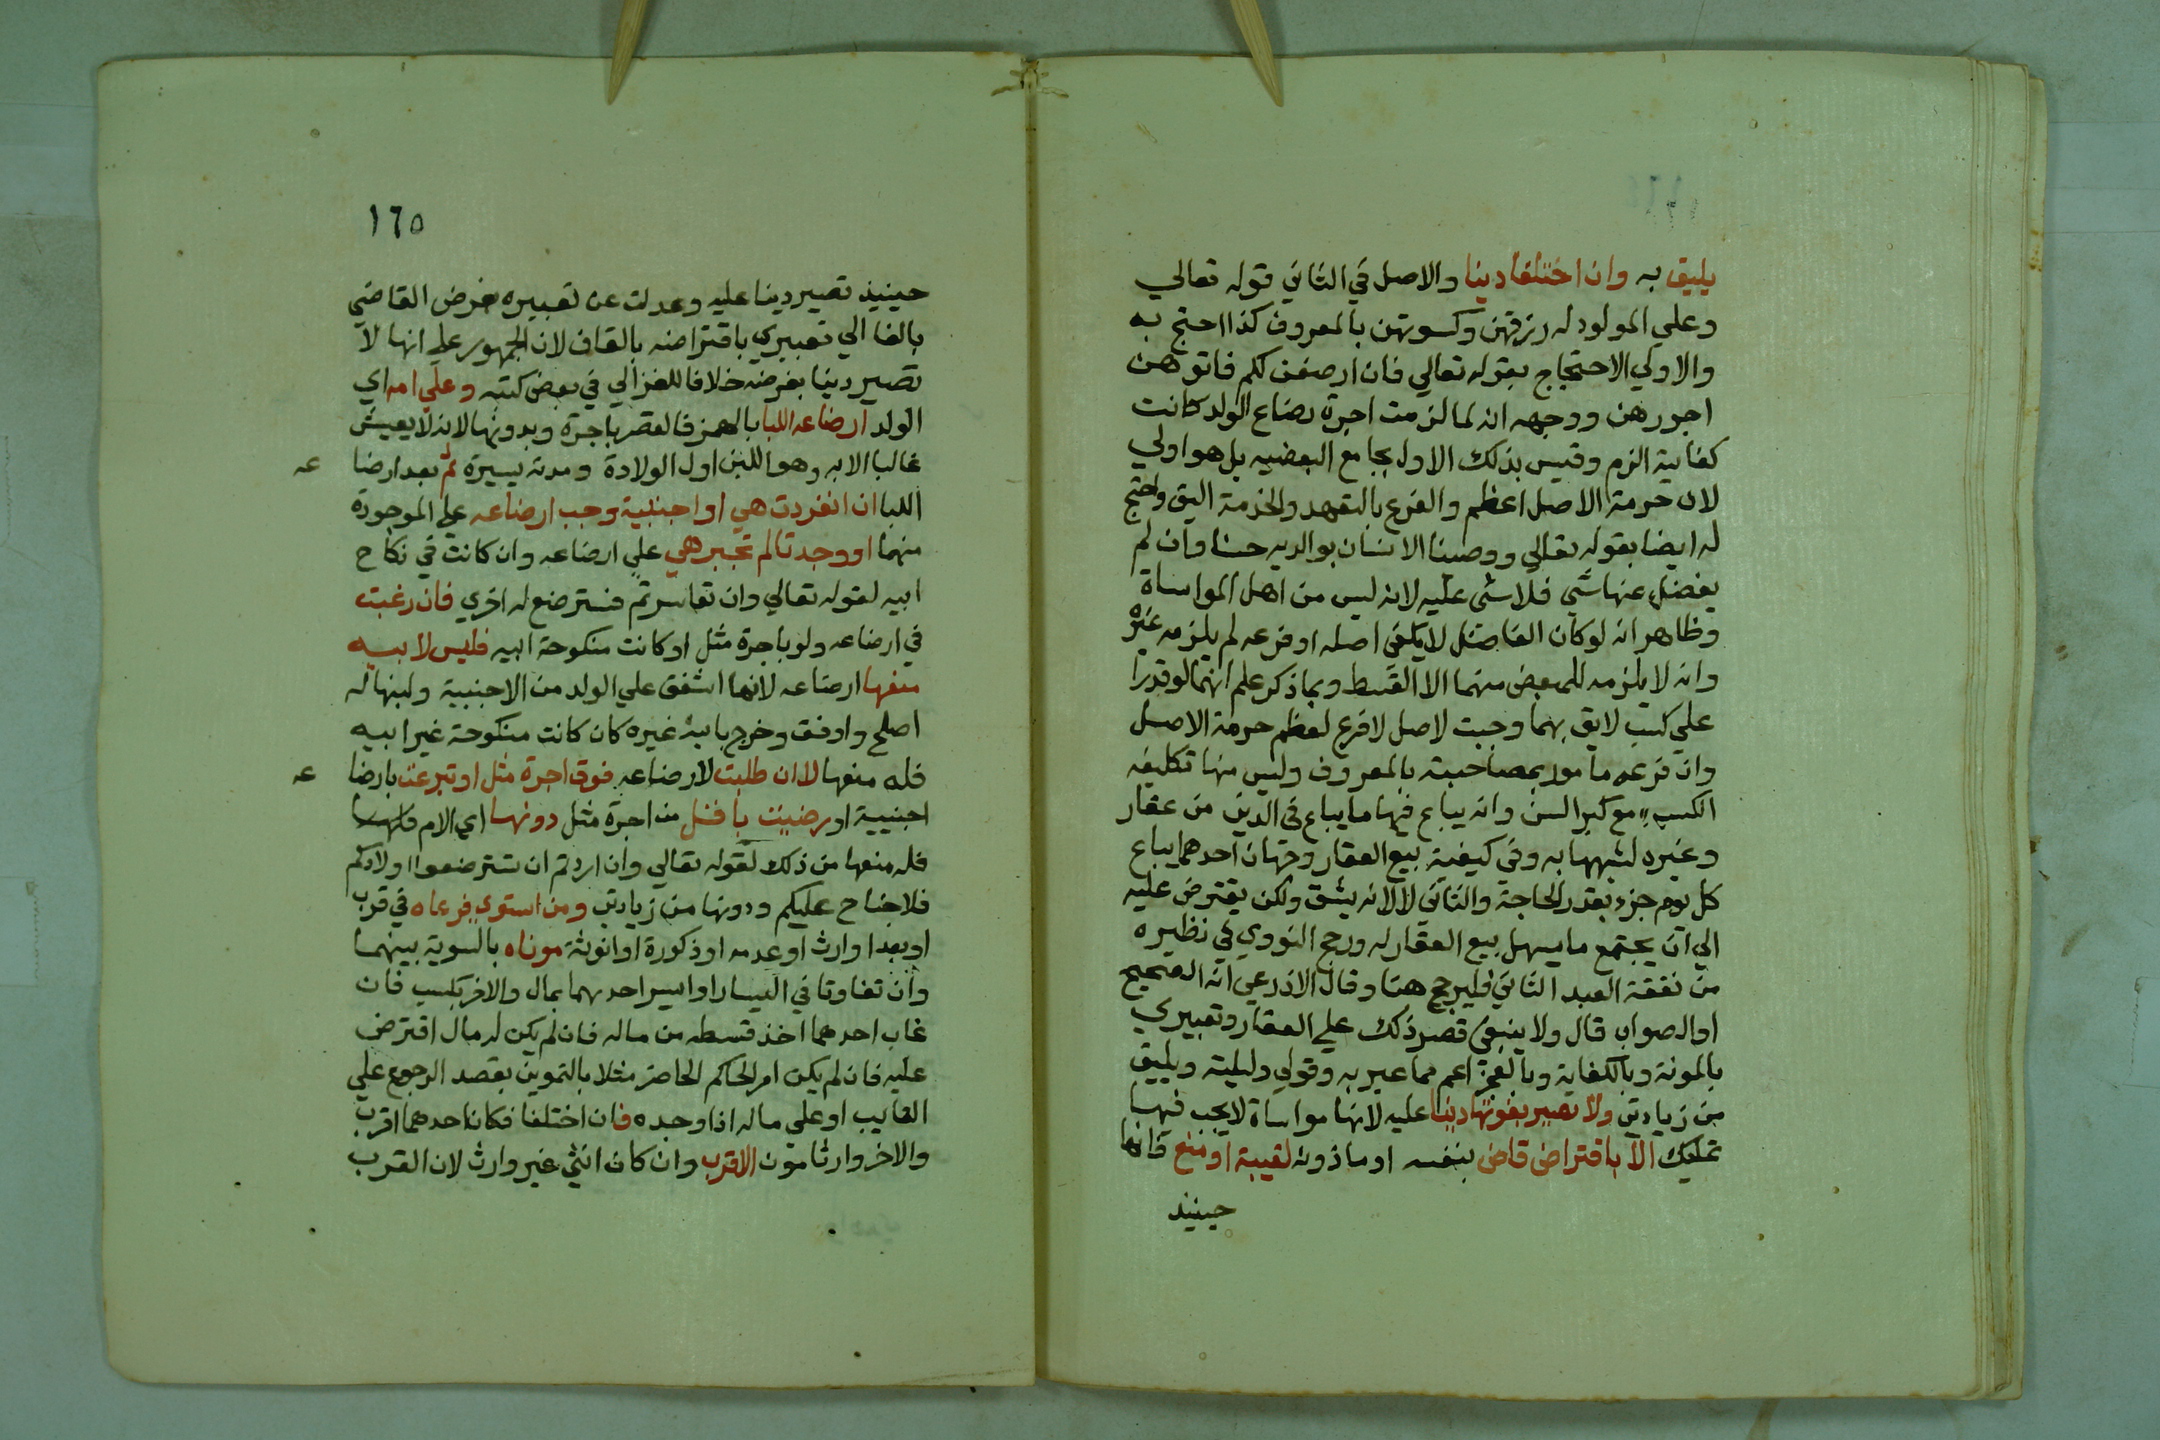 يليق به وان اختلفا دينا والاصل في الثاني قوله تعالي
وعلي المولود له رزقهن وكسوتهن بالمعروف كذا احتج به
والاولي الاحتجاج بقوله تعالي فان ارضعن لكم فاتوهن
اجورهن ووجهه انه لما لزمت اجرة رضاع الولد كانت
كفايته الزم وقيس بذلك الاول بجامع البعضيه بل هو اولي
لان حرمة الاصل اعظم والفرع بالتعهد والخدمة اليق واحتج
له ايضا بقوله تعالي ووصينا الانسان بوالديه حسنا وان لم
يفضل عنها شي فلا شي عليه لانه ليس من اهل المواساة
وظاهر انه لو كان الفاضل لا يكفي اصله او فرعه لم يلزمه غيره
وانه لا يلزمه للمبعض منهما الا القسط وبما ذكر علم انهما لو قدرا
علي كسب لايق بهما وجبت لاصل لا فرع لعظم حرمة الاصل
وان فرعه مامور بمصاحبته بالمعروف وليس منها تكليفه
الكسب مع كبر السن وانه يباع فيها ما يباع في الدين من عقار
وغيره لشبهها به وفي كيفية بيع العقار وجهان احدهما يباع
كل يوم جزء بقدر الحاجة والثاني لا لانه يشق ولكن يقترض عليه
الي ان يجتمع ما يسهل بيع العقار له ورجح النووي في نظيره
من نفقة العبد الثاني فليرجح هنا وقال الاذرعي انه الصحيح
او الصواب قال ولا ينبغي قصر ذلك علي العقار وتعبيري
بالمونة وبالكفاية وبالعجز اعم مما عبر به وقولي وليليته ويليق
من زيادتي ولا تصير بفوتها دينا عليه لانها مواساة لا يجب فيها
تمليك الا باقتراض قاض بنفسه او ماذونه لغيبة او منع فانها
حينيذ
١٦٥
حينيذ تصير دينا عليه وعدلت عن تعبيره بفرض القاضي
بالفا الي تعبيري باقتراضه بالقاف لان الجمهور علي انها لا
تصير دينا بفرضه خلافا للغزالي في بعض كتبه وعلي امه اي
الولد ارضاعه اللبا بالهمز فالقصر باجرة وبدونها لانه لا يعيش
غالبا الا به وهو اللبن اول الولادة ومدته يسيرة ثم بعد ارضا عه
اللبا ان انفردت هي او اجنبية وجب ارضاعه علي الموجودة
منهما او وجدتا لم تجبر هي علي ارضاعه وان كانت في نكاح
ابيه لقوله تعالي وان تعاسرتم فسترضع له اخري فان رغبت
في ارضاعه ولو باجرة مثل او كانت منكوحة ابيه فليس لابيه
منعها ارضاعه لانها اشفق علي الولد من الاجنبية ولبنها له
اصلح واوفق وخرج بابيه غيره كان كانت منكوحة غير ابيه
فله منعها لا ان طلبت لارضاعه فوق اجرة مثل او تبرعت بارضا عه
اجنبية او رضيت باقل من اجرة مثل دونها اي الام
فله منعها من ذلك لقوله تعالي وان اردتم ان تسترضعوا اولادكم
فلا جناح عليكم ودونها من زيادتي ومن استوي فرعاه في قرب
او بعد او ارث او عدمه او ذكورة او انوثة موناه بالسوية بينهما
وان تفاوتا في اليسار او ايسر احدهما بمال والاخر بكسب فان
غاب احدهما اخذ قسطه من ماله فان لم يكن له مال اقترض
عليه فان لم يكن امر الحاكم الحاضر مثلا بالتموين بقصد الرجوع علي
الغايب او علي ماله اذا وجده فان اختلفا فكان احدهما اقرب
والاخر وارثا مون الاقرب وان كان انثي غير وارث لان القرب